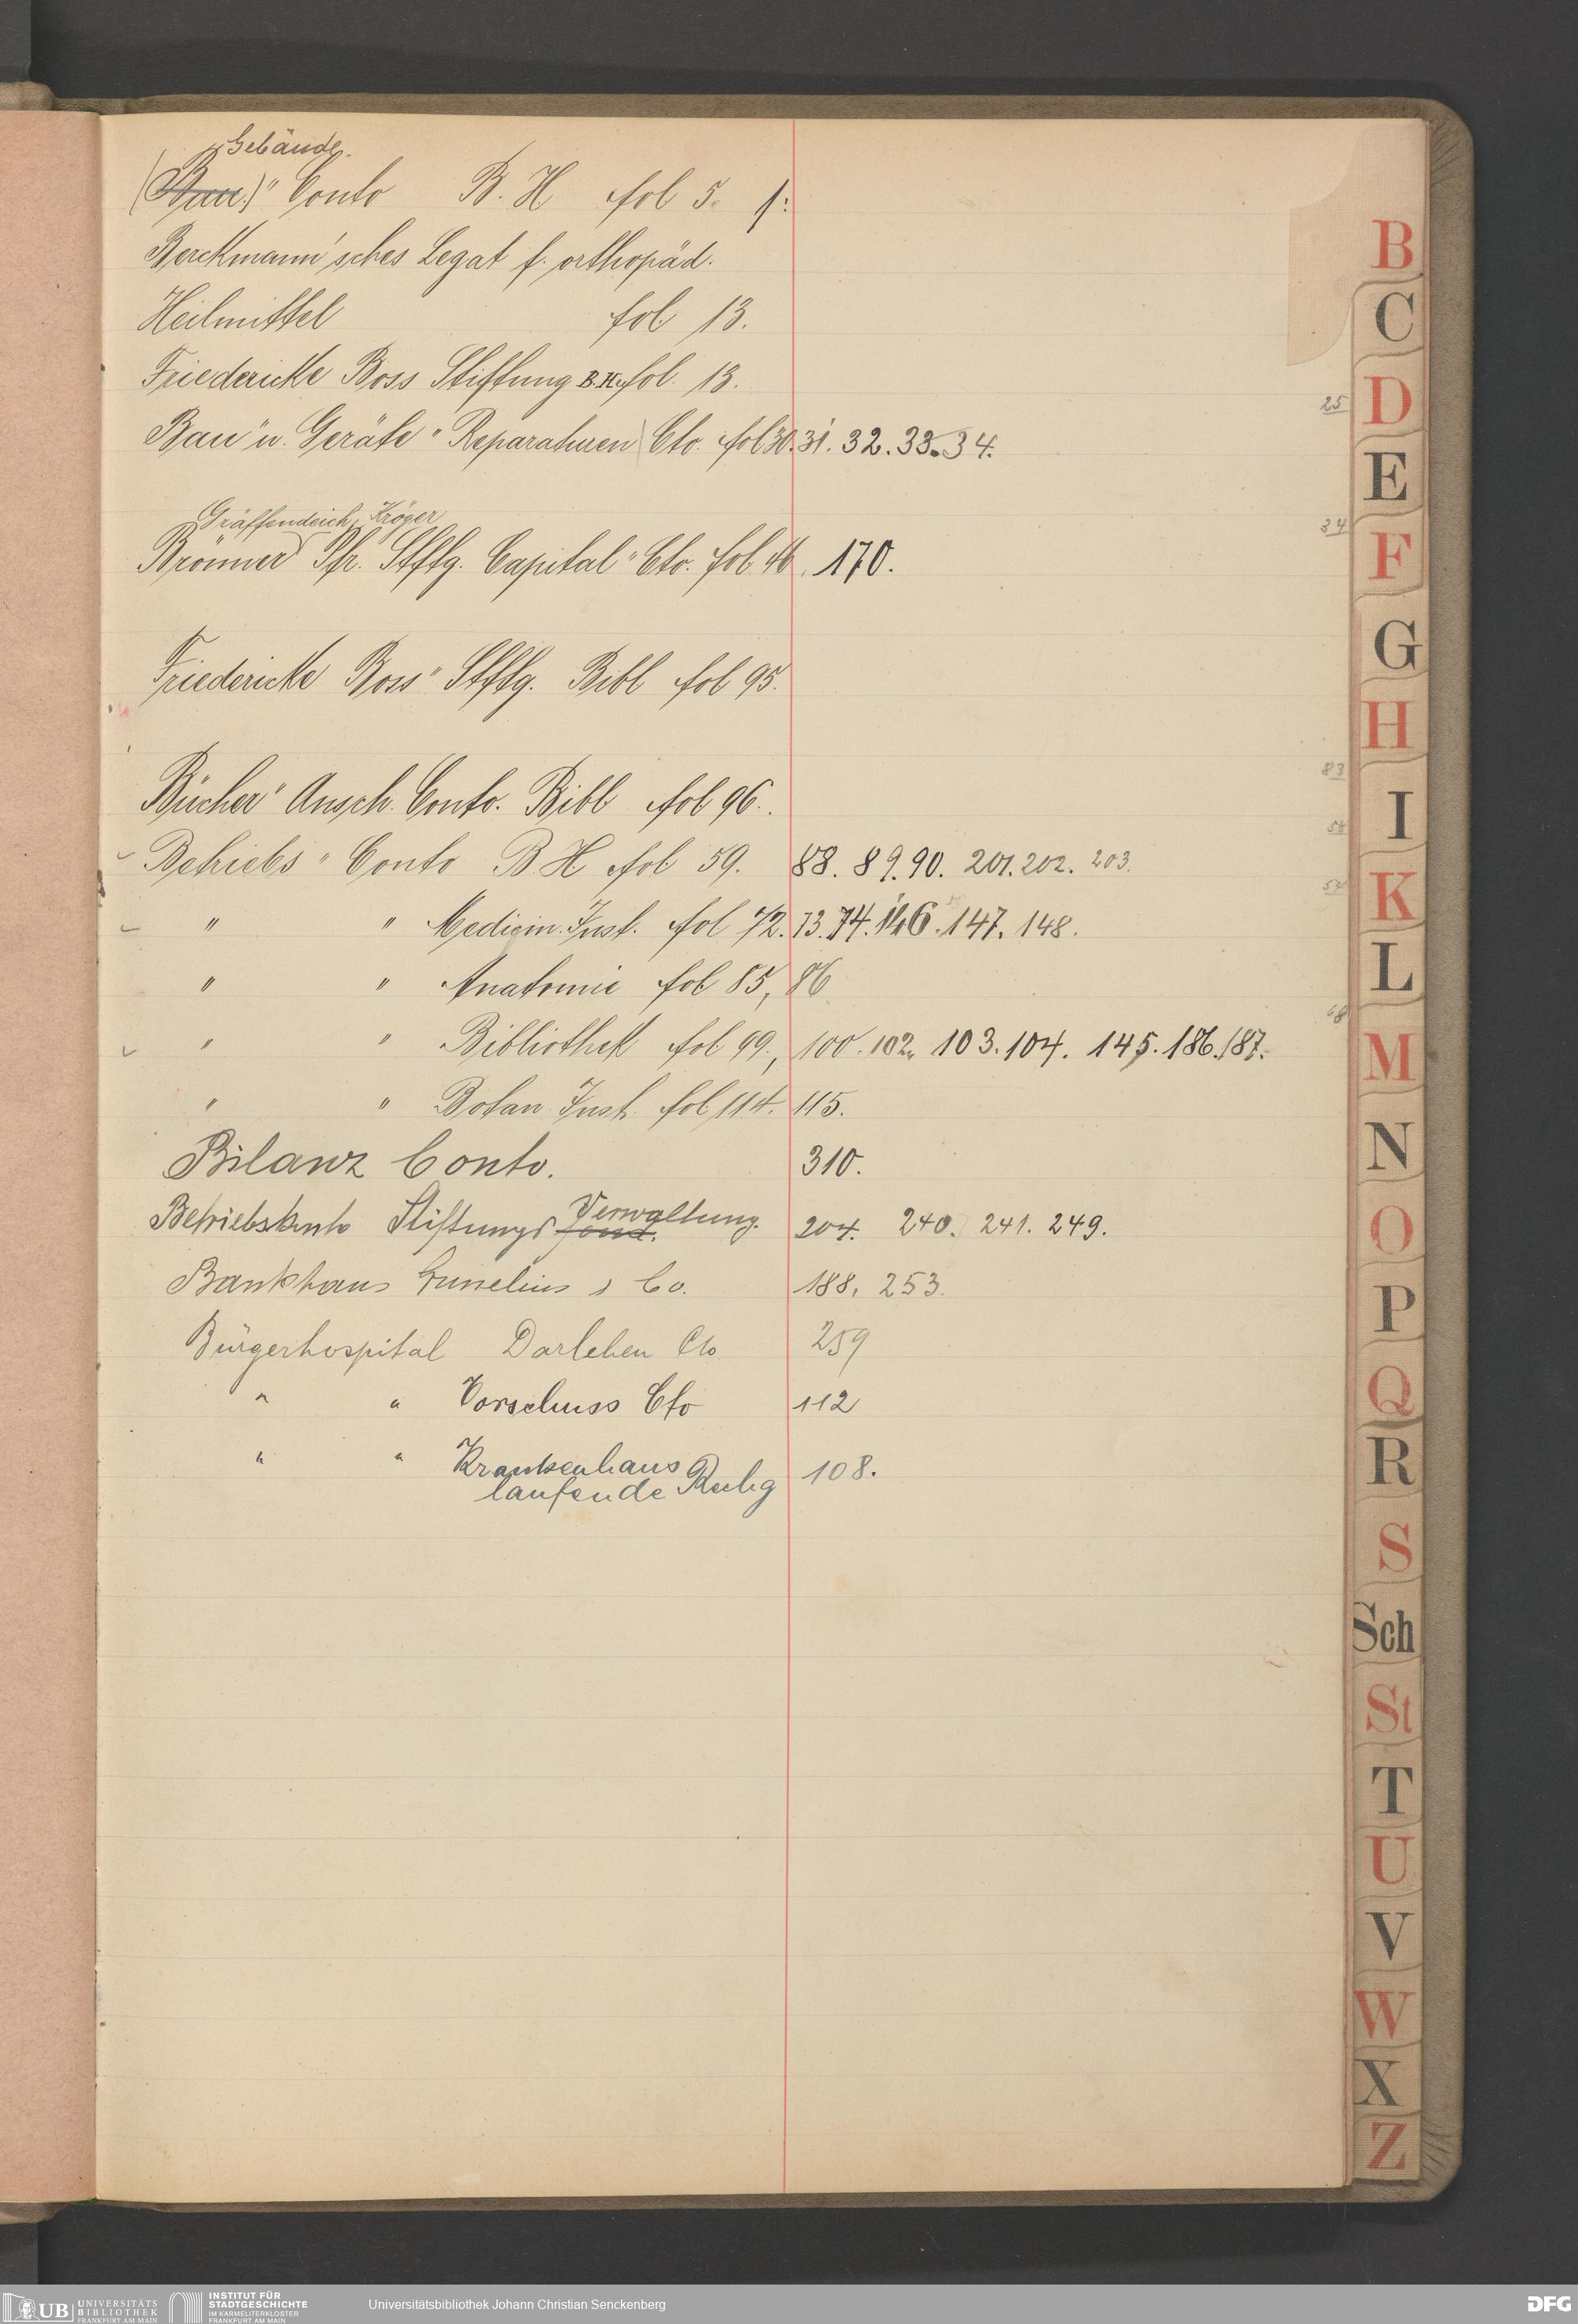 Gebäude.
(Bau)" Conto B. H fol 5.
Berckmann'sches Legat f. orthopäd.
Heilmittel fol 13.
Friedericke Boss Stiftung B.H. fol. 13.
Bau" u. Geräte " Reparaturen Cto. fol 30. 31. 32. 33. 34.
Kröger
Brönner Pfr. Stftg. Capital " Cto. fol 46. 170.
Friedericke Boss" Stftg. Bibl fol 95.
Bücher" Ansch. Conto. Bibl fol 96.
Betriebs " Conto B H fol 59. 88. 89. 90. 201. 202. 203.
" " Medicin. Inst. fol 72. 73. 74. 146. 147. 148.
" " Anatomie fol 85, 86
" " Bibliothek fol 99., 100. 102. 103. 104. 145. 186. 187.
" " Botan Inst. fol 114. 115.
Bilanz Conto. 310.
Verwaltung.
Betriebskonto Stiftungsfond. 204. 240. 241. 249.
Bankhaus Grunelius & Co. 188. 253.
Bürgerhospital Darlehen Cto 259
" " Vorschuss Cto 112
" " Krankenhaus
laufende Rechg 108.
25
34
83
B
C
D
E
F
G
H
I
K
L
M
N
O
P
Q
R
S
Sch
St
T
U
V
W
X
Z
UB UNIVERSITÄTS
BIBLIOTHEK
FRANKFURT AM MAIN
INSTITUT FÜR
STADTGESCHICHTE
IM KARMELITERKLOSTER
FRANKFURT AM MAIN
Universitätsbibliothek Johann Christian Senckenberg
DFG